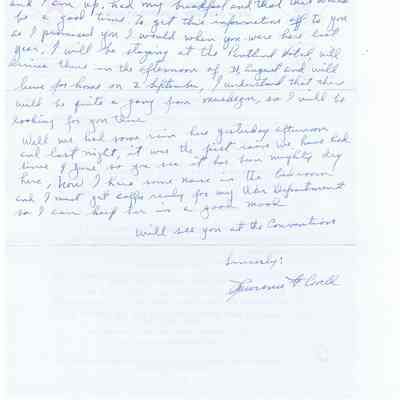 and I am up, had my breakfast and that this would
be a good time to get this information off to you
as I promised you I would when you were here last
year. I will be staying at the Portland Hotel, will
arrive there in the afternoon of 31 August and will
leave for home on 2 September, I understand that there
will be quite a gang from so I will be
looking for you there
Well we had some rain here yesterday afternoon
and last night, it was the first rain we have had
since June, so you see it has been mighty dry
here, now I hear some noise in the bedroom
and I must get coffee ready for my War Department
so I can keep her in a good mood
Will see you at the Convention
Sincerely:
Lawrence